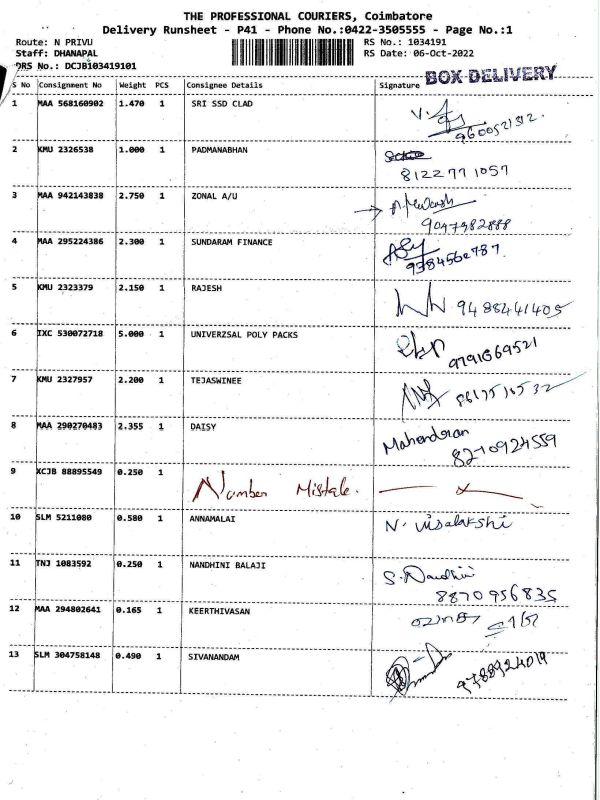 THE PROFESSIONAL COURIERS, Coimbatore
Delivery Runsheet - P41 - Phone No.:0422-3505555 - Page No.:1
Route: N PRIVU RS No.: 1034191
Staff: DHANAPAL RS Date: 06-Oct-2022
DRS No.: DCJB103419101
BOX DELIVERY
S No Consignment No Weight PCS Consignee Details Signature
1 MAA 568160902 1.470 1 SRI SSD CLAD
9600521312.
2 KMU 2326538 1.000 1 PADMANABHAN
8122771057
3 MAA 942143838 2.750 1 ZONAL A/U
9047982888
4 MAA 295224386 2.300 1 SUNDARAM FINANCE
5 KMU 2323379 2.150 1 RAJESH
9488441405
6 IXC 530072718 5.000 1 UNIVERZSAL POLY PACKS
9791869521
7 KMU 2327957 2.200 1 TEJASWINEE
8 MAA 290270483 2.355 1 DAISY Mahendran
8210924559
9 KCJB 88895549 0.250 1 Number Mistake.
10 SLM 5211080 0.580 1 ANNAMALAI N. Visalakshi
11 TNJ 1083592 0.250 1 NANDHINI BALAJI S. Nandhini
8870956835
12 MAA 294802641 0.165 1 KEERTHIVASAN
13 SLM 304758148 0.490 1 SIVANANDAM
9788924019